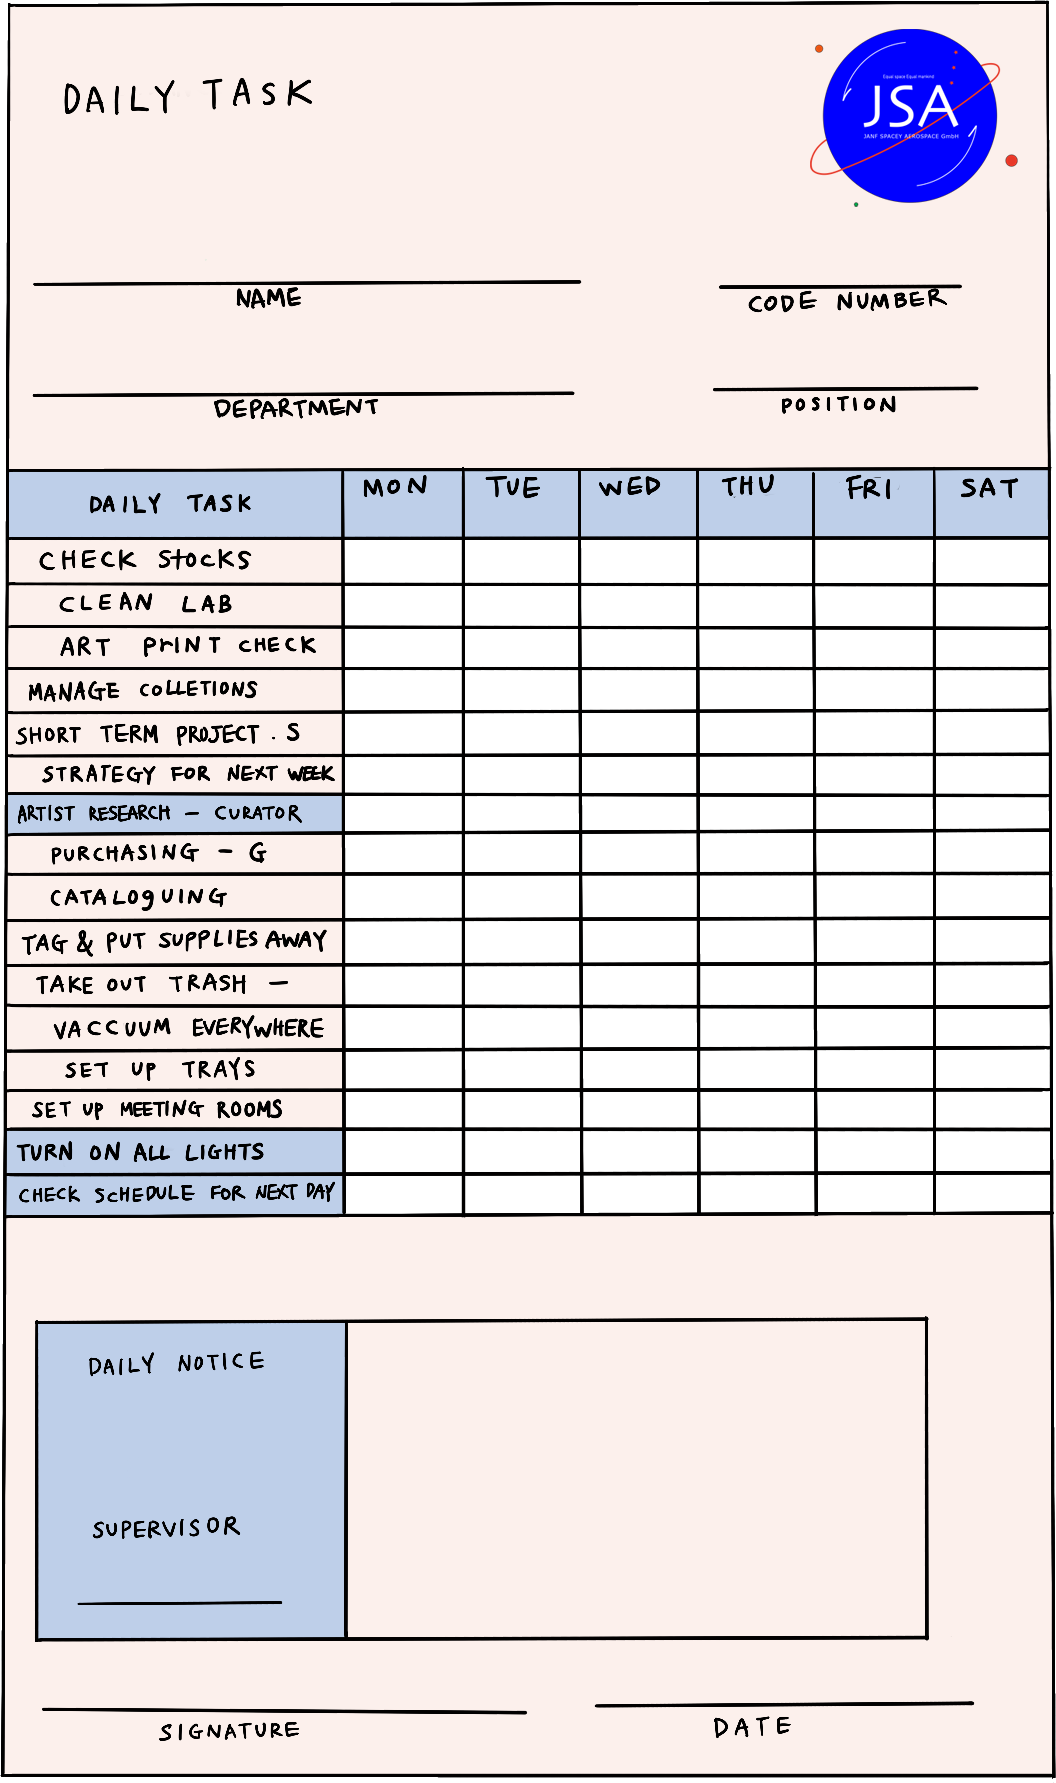 DAILY TASK
Equal space Equal mankind
JSA
JANF SPACEY AEROSPACE GmbH
NAME
CODE NUMBER
DEPARTMENT
POSITION
DAILY TASK MON TUE WED THU FRI SAT
CHECK StOCKS
CLEAN LAB
ART PrINT CHECK
MANAGE COLLETIONS
SHORT TERM PROJECT . S
STRATEGY FOR NEXT WEEK
ARTIST RESEARCH - CURATOR
PURCHASING - G
CATALOgUING
TAG & PUT SUPPLIES AWAY
TAKE OUT TRASH -
VACCUUM EVERYWHERE
SET UP TRAYS
SET UP MEETING ROOMS
TURN ON ALL LIGHTS
CHECK SCHEDULE FOR NEXT DAY
DAILY NOTICE
SUPERVISOR
SIGNATURE
DATE